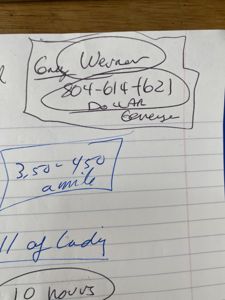 Gary Werner
804-614-1621
DOLLAR
General
3.50-4.50
a mile
ll of Lady
10 hours